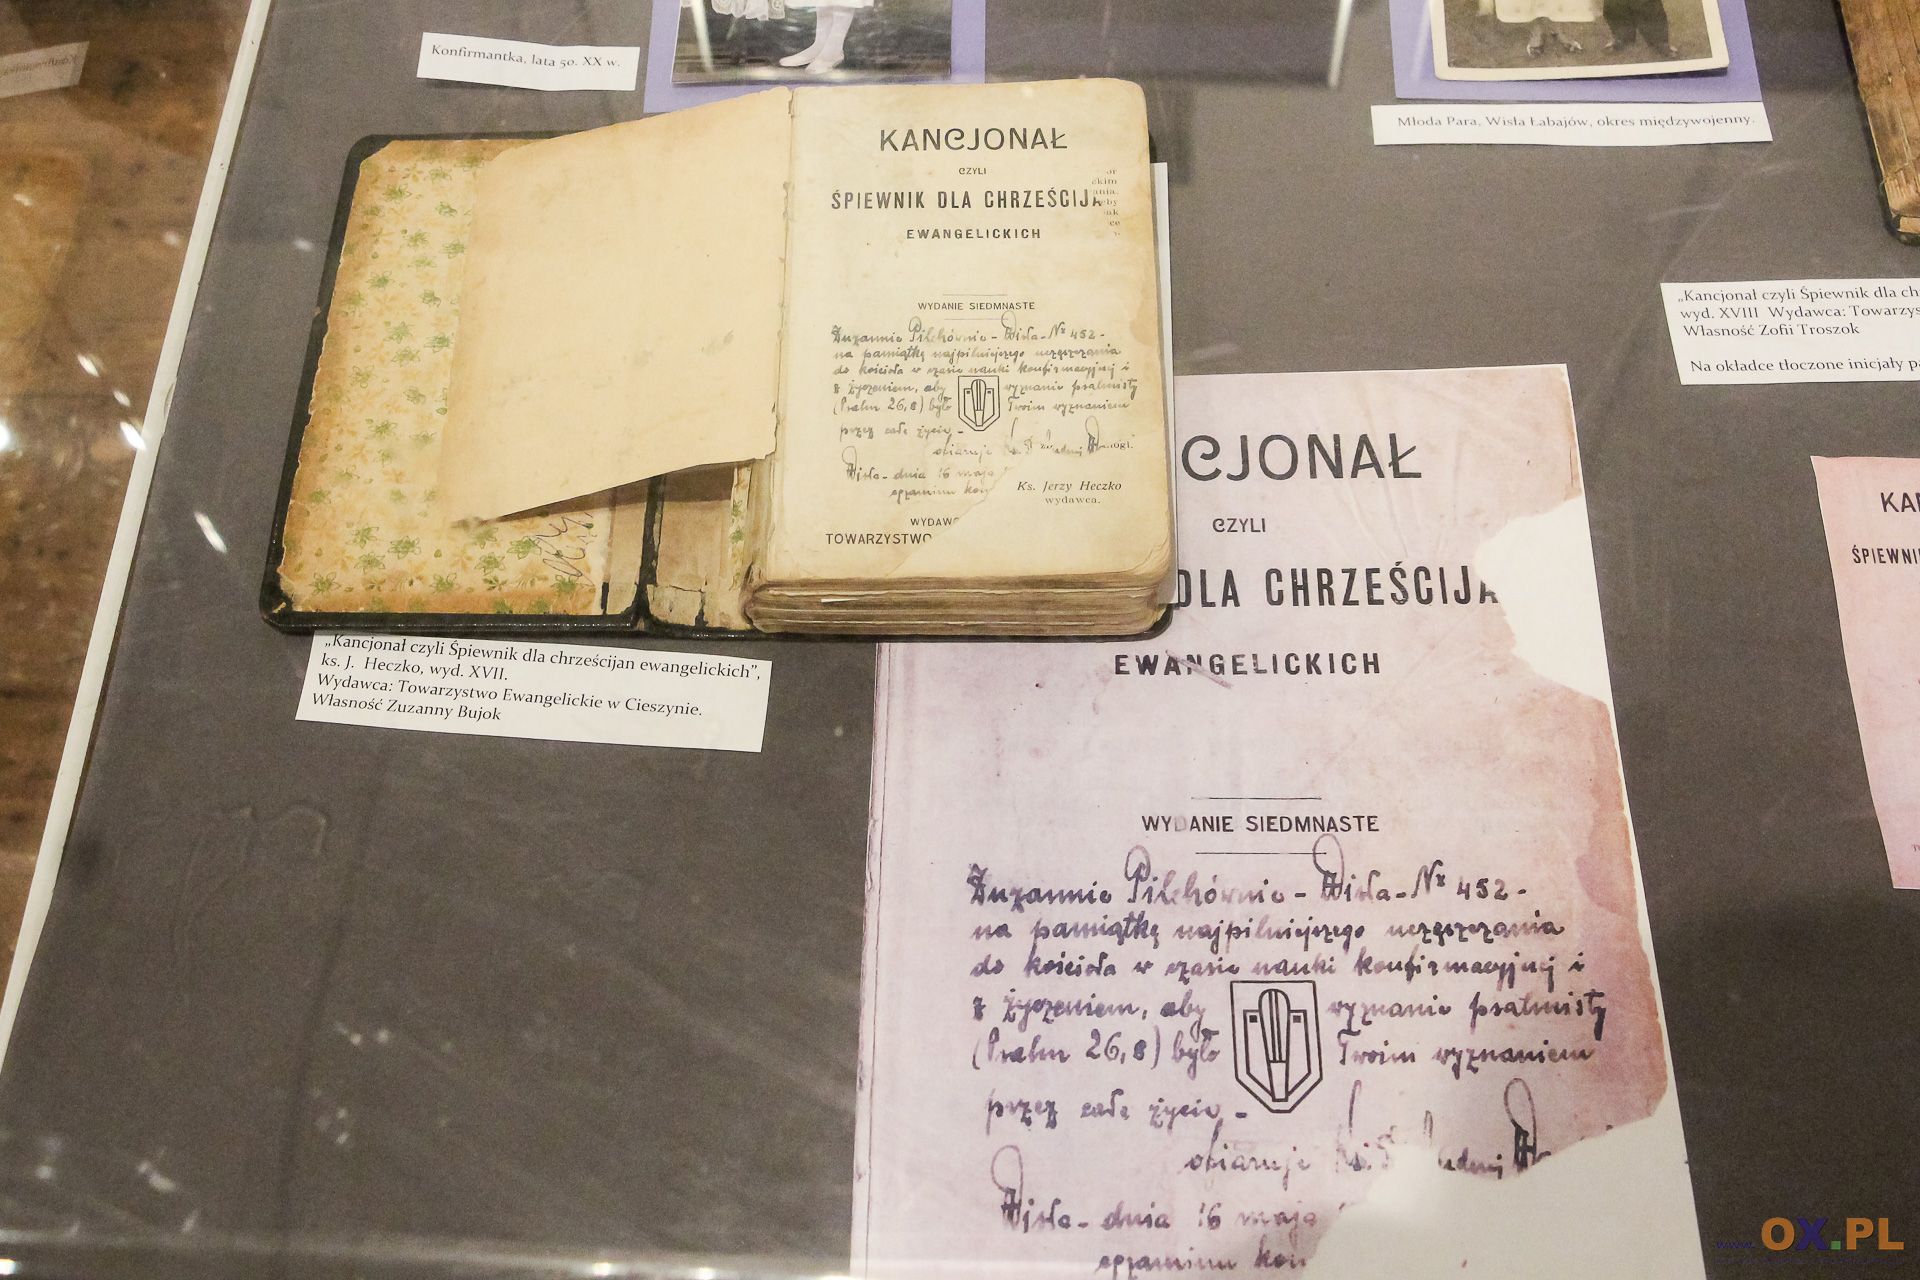 Konfirmantka, lata 50. XX w.
Młoda Para, Wisła Łabajów, okres międzywojenny.
KANCJONAŁ
CZYLI
ŚPIEWNIK DLA CHRZEŚCIJA
EWANGELICKICH
WYDANIE SIEDMNASTE
Zuzannie Pilchównie - Wisła - Nr 452 -
na pamiątkę najpilniejszego uczęszczania
do kościoła w czasie nauki konfirmacyjnej i
z życzeniem, aby wyznanie psalmisty
(Psalm 26,8) było Twoim wyznaniem
przez całe życie -
ofiaruje
Wisła - dnia 16 maja
egzaminu kon
Ks. Jerzy Heczko
wydawca.
WYDAWC
TOWARZYSTWO
„Kancjonał czyli Śpiewnik dla chrześcijan ewangelickich”,
ks. J. Heczko, wyd. XVII.
Wydawca: Towarzystwo Ewangelickie w Cieszynie.
Własność Zuzanny Bujok
„Kancjonał czyli Śpiewnik dla ch
wyd. XVIII Wydawca: Towarzys
Własność Zofii Troszok
Na okładce tłoczone inicjały p
CJONAŁ
CZYLI
DLA CHRZEŚCIJA
EWANGELICKICH
WYDANIE SIEDMNASTE
Zuzannie Pilchównie - Wisła - Nr 452 -
na pamiątkę najpilniejszego uczęszczania
do kościoła w czasie nauki konfirmacyjnej i
z życzeniem, aby wyznanie psalmisty
(Psalm 26,8) było Twoim wyznaniem
przez całe życie -
ofiaruje
Wisła - dnia 16 maja
egzaminu kon
KA
ŚPIEWNI
www.OX.PL